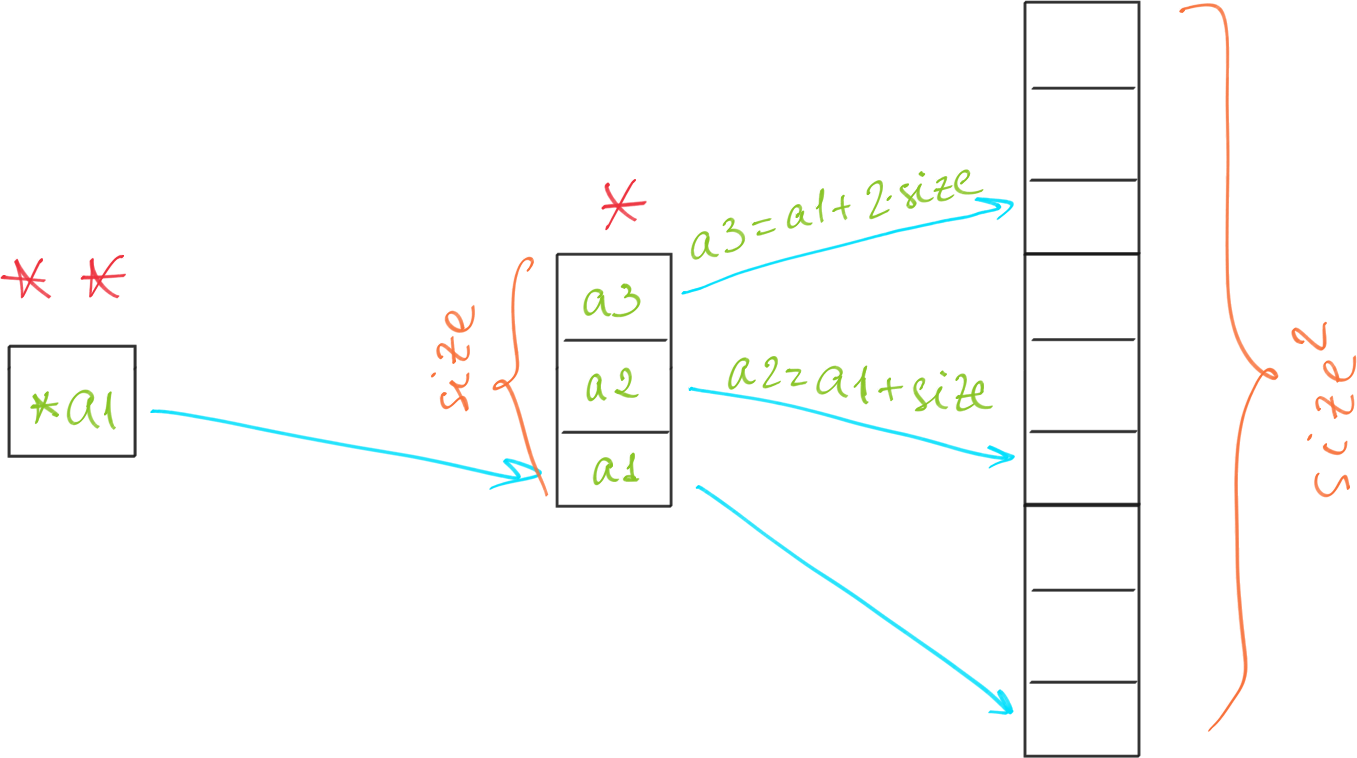 * *
*a1
size
*
a3
a2
a1
a3=a1+2·size
a2=a1+size
size2